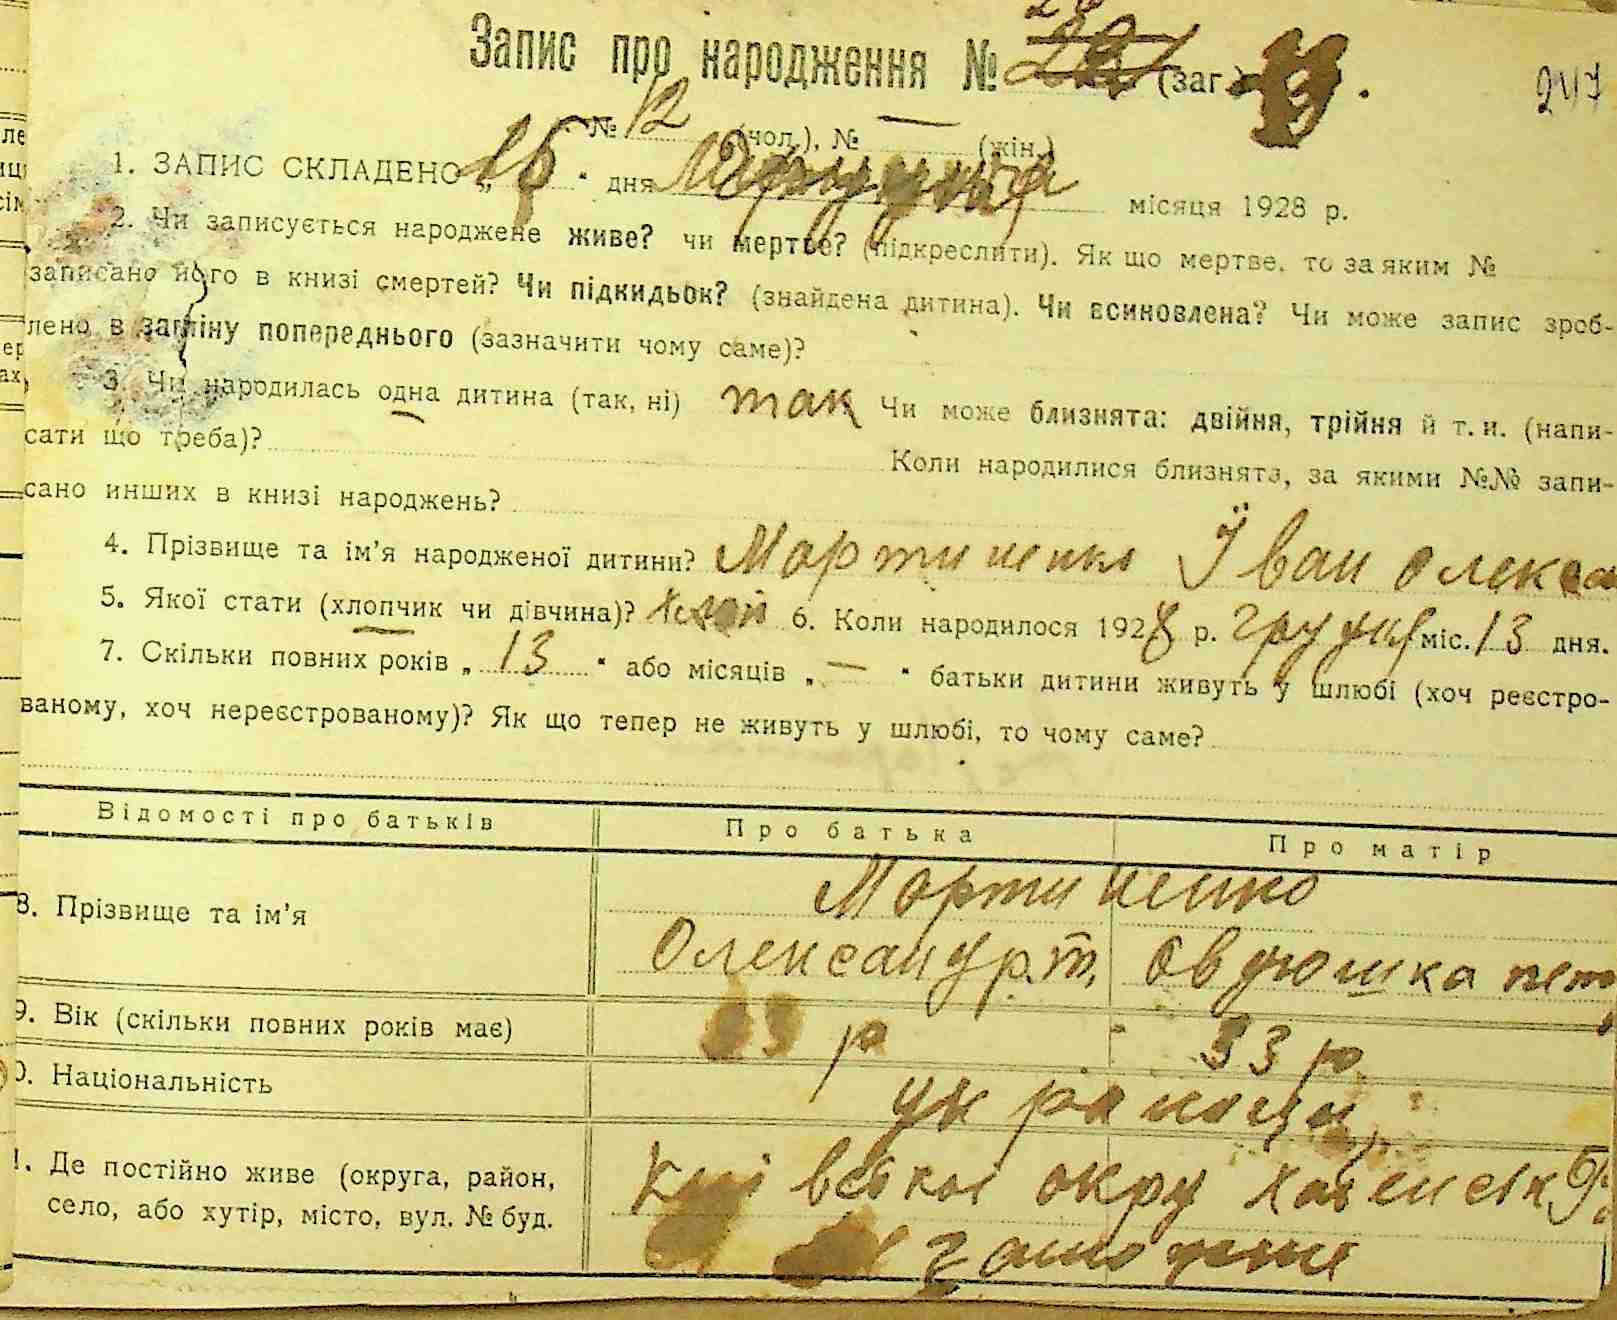 Запис про народження № (заг.) .
247
№ 12 (чол.), № — (жін.)
1. ЗАПИС СКЛАДЕНО „ 15 “ дня місяця 1928 р.
2. Чи записується народжене живе? чи мертве? (підкреслити). Як що мертве, то за яким №
записано його в книзі смертей? Чи підкидьок? (знайдена дитина). Чи всиновлена? Чи може запис зроб-
лено в заміну попереднього (зазначити чому саме)?
3. Чи народилась одна дитина (так, ні) так Чи може близнята: двійня, трійня й т. и. (напи-
сати що треба)? Коли народилися близнята, за якими №№ запи-
сано инших в книзі народжень?
4. Прізвище та ім’я народженої дитини? Мартиненко Іван Олекса
5. Якої стати (хлопчик чи дівчина)? 6. Коли народилося 1928 р. грудня міс. 13 дня.
7. Скільки повних років „ 13 “ або місяців „ — “ батьки дитини живуть у шлюбі (хоч реєстро-
ваному, хоч нереєстрованому)? Як що тепер не живуть у шлюбі, то чому саме?
Відомості про батьків Про батька Про матір
8. Прізвище та ім’я Мартиненко
Олександр. т. Овдюшка пет
9. Вік (скільки повних років має) р 33 р
0. Національність українці
1. Де постійно живе (округа, район, округ
село, або хутір, місто, вул. № буд.